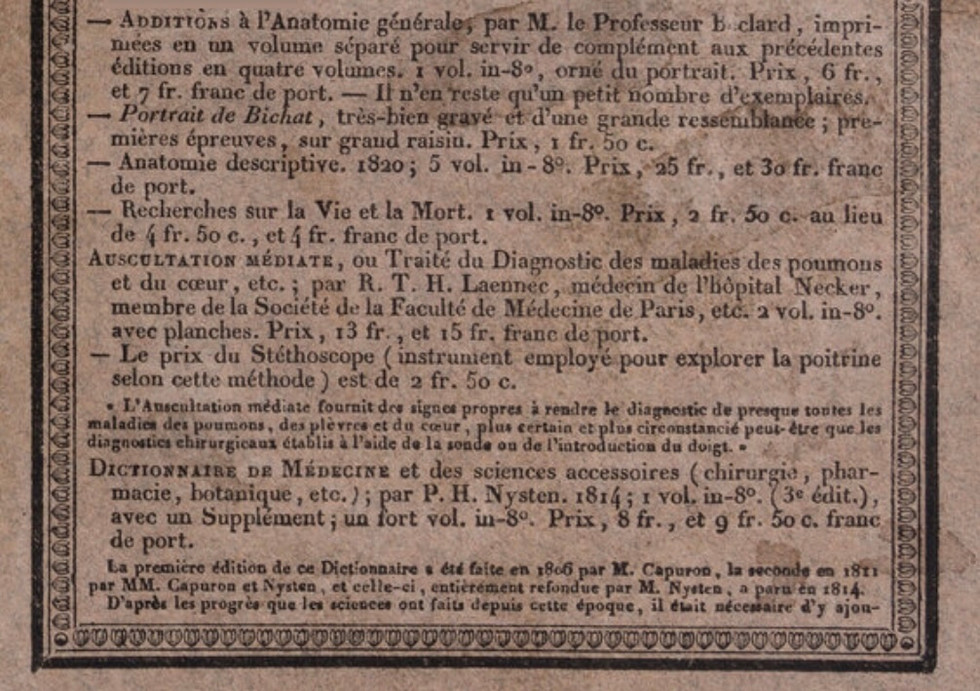 — ADDITIONS à l'Anatomie générale, par M. le Professeur B clard, impri-
mées en un volume séparé pour servir de complément aux précédentes
éditions en quatre volumes. 1 vol. in-8°, orné du portrait. Prix, 6 fr.,
et 7 fr. franc de port. — Il n'en reste qu'un petit nombre d'exemplaires.
— Portrait de Bichat, très-bien gravé et d'une grande ressemblance; pre-
mières épreuves, sur grand raisin. Prix, 1 fr. 50 c.
— Anatomie descriptive. 1820; 5 vol. in-8°. Prix, 25 fr., et 30 fr. franc
de port.
— Recherches sur la Vie et la Mort. 1 vol. in-8°. Prix, 2 fr. 50 c. au lieu
de 4 fr. 50 c., et 4 fr. franc de port.
AUSCULTATION MÉDIATE, ou Traité du Diagnostic des maladies des poumons
et du cœur, etc.; par R. T. H. Laennec, médecin de l'hôpital Necker,
membre de la Société de la Faculté de Médecine de Paris, etc. 2 vol. in-8°.
avec planches. Prix, 13 fr., et 15 fr. franc de port.
— Le prix du Stéthoscope (instrument employé pour explorer la poitrine
selon cette méthode) est de 2 fr. 50 c.
« L'Auscultation médiate fournit des signes propres à rendre le diagnostic de presque toutes les
maladies des poumons, des plèvres et du cœur, plus certain et plus circonstancié peut-être que les
diagnostics chirurgicaux établis à l'aide de la sonde ou de l'introduction du doigt. »
DICTIONNAIRE DE MÉDECINE et des sciences accessoires (chirurgie, phar-
macie, botanique, etc.); par P. H. Nysten. 1814; 1 vol. in-8°. (3e édit.),
avec un Supplément; un fort vol. in-8°. Prix, 8 fr., et 9 fr. 50 c. franc
de port.
La première édition de ce Dictionnaire a été faite en 1806 par M. Capuron, la seconde en 1811
par MM. Capuron et Nysten, et celle-ci, entièrement refondue par M. Nysten, a paru en 1814.
D'après les progrès que les sciences ont faits depuis cette époque, il était nécessaire d'y ajou-